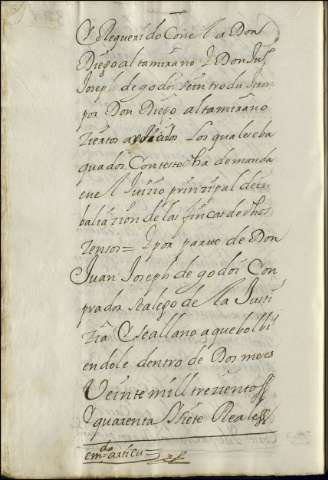 el Requerido Con el a Don
Diego altamirano i Don Ju.
Joseph de godoi se introdujeron
por Don Diego altamirano
Ziertos articulos Los quales eba
quados Contesto ha demanda
en el Juizio prinzipal de ti
baliazion de las fincas de dhos
Zensos = I por parte de Don
Juan Joseph de godoi Con
prador se alego de lla Justi
Zia I se allano a que bolbi
endole dentro de Dos meses
Veinte mill treziento ss
I quarenta I Siete Reales
em.do articu =